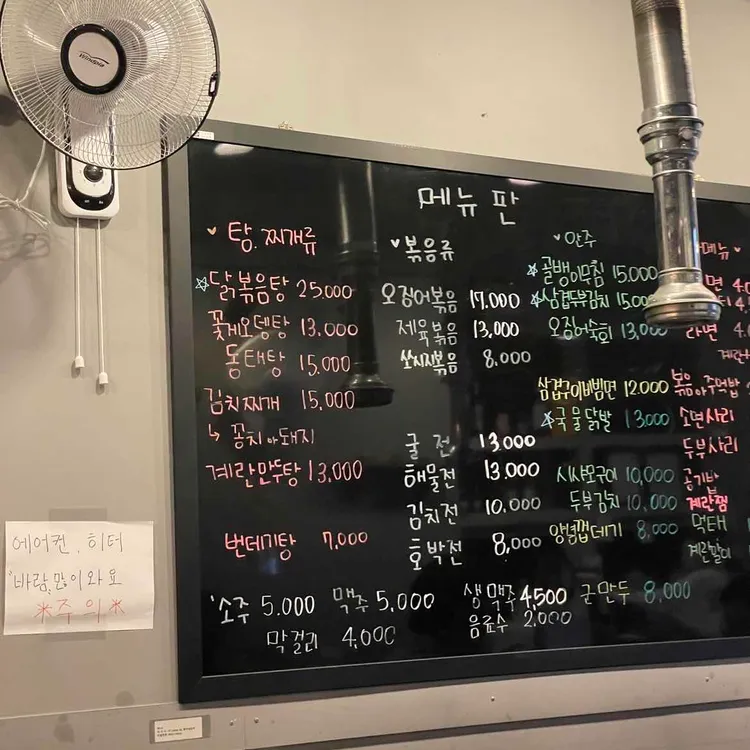 메뉴판
♥ 탕.찌개류
☆ 닭볶음탕 25.000
꽃게오뎅탕 13.000
동태탕 15,000
김치찌개 15,000
↳ 꽁치 or 돼지
계란만두탕 13,000
번데기탕 7,000
♥ 볶음류
오징어볶음 17.000
제육볶음 13,000
쏘시지볶음 8,000
굴전 13.000
해물전 13.000
김치전 10,000
호박전 8,000
♥ 안주
☆ 골뱅이무침 15.000
☆ 삼겹두부김치 15.000
오징어숙회 13,000
삼겹구이비빔면 12.000
☆ 국물닭발 13000
시샤모구이 10,000
두부김치 10,000
양념껍데기 8,000
메뉴 ♥
라면
볶음
주먹밥
소면사리
두부사리
공기밥
계란찜
먹태
계란말이
소주 5.000 맥주 5,000 생맥주 4,500 군만두 8,000
막걸리 4,000 음료수 2,000
에어컨, 히터
바람, 많이와요
*주의*